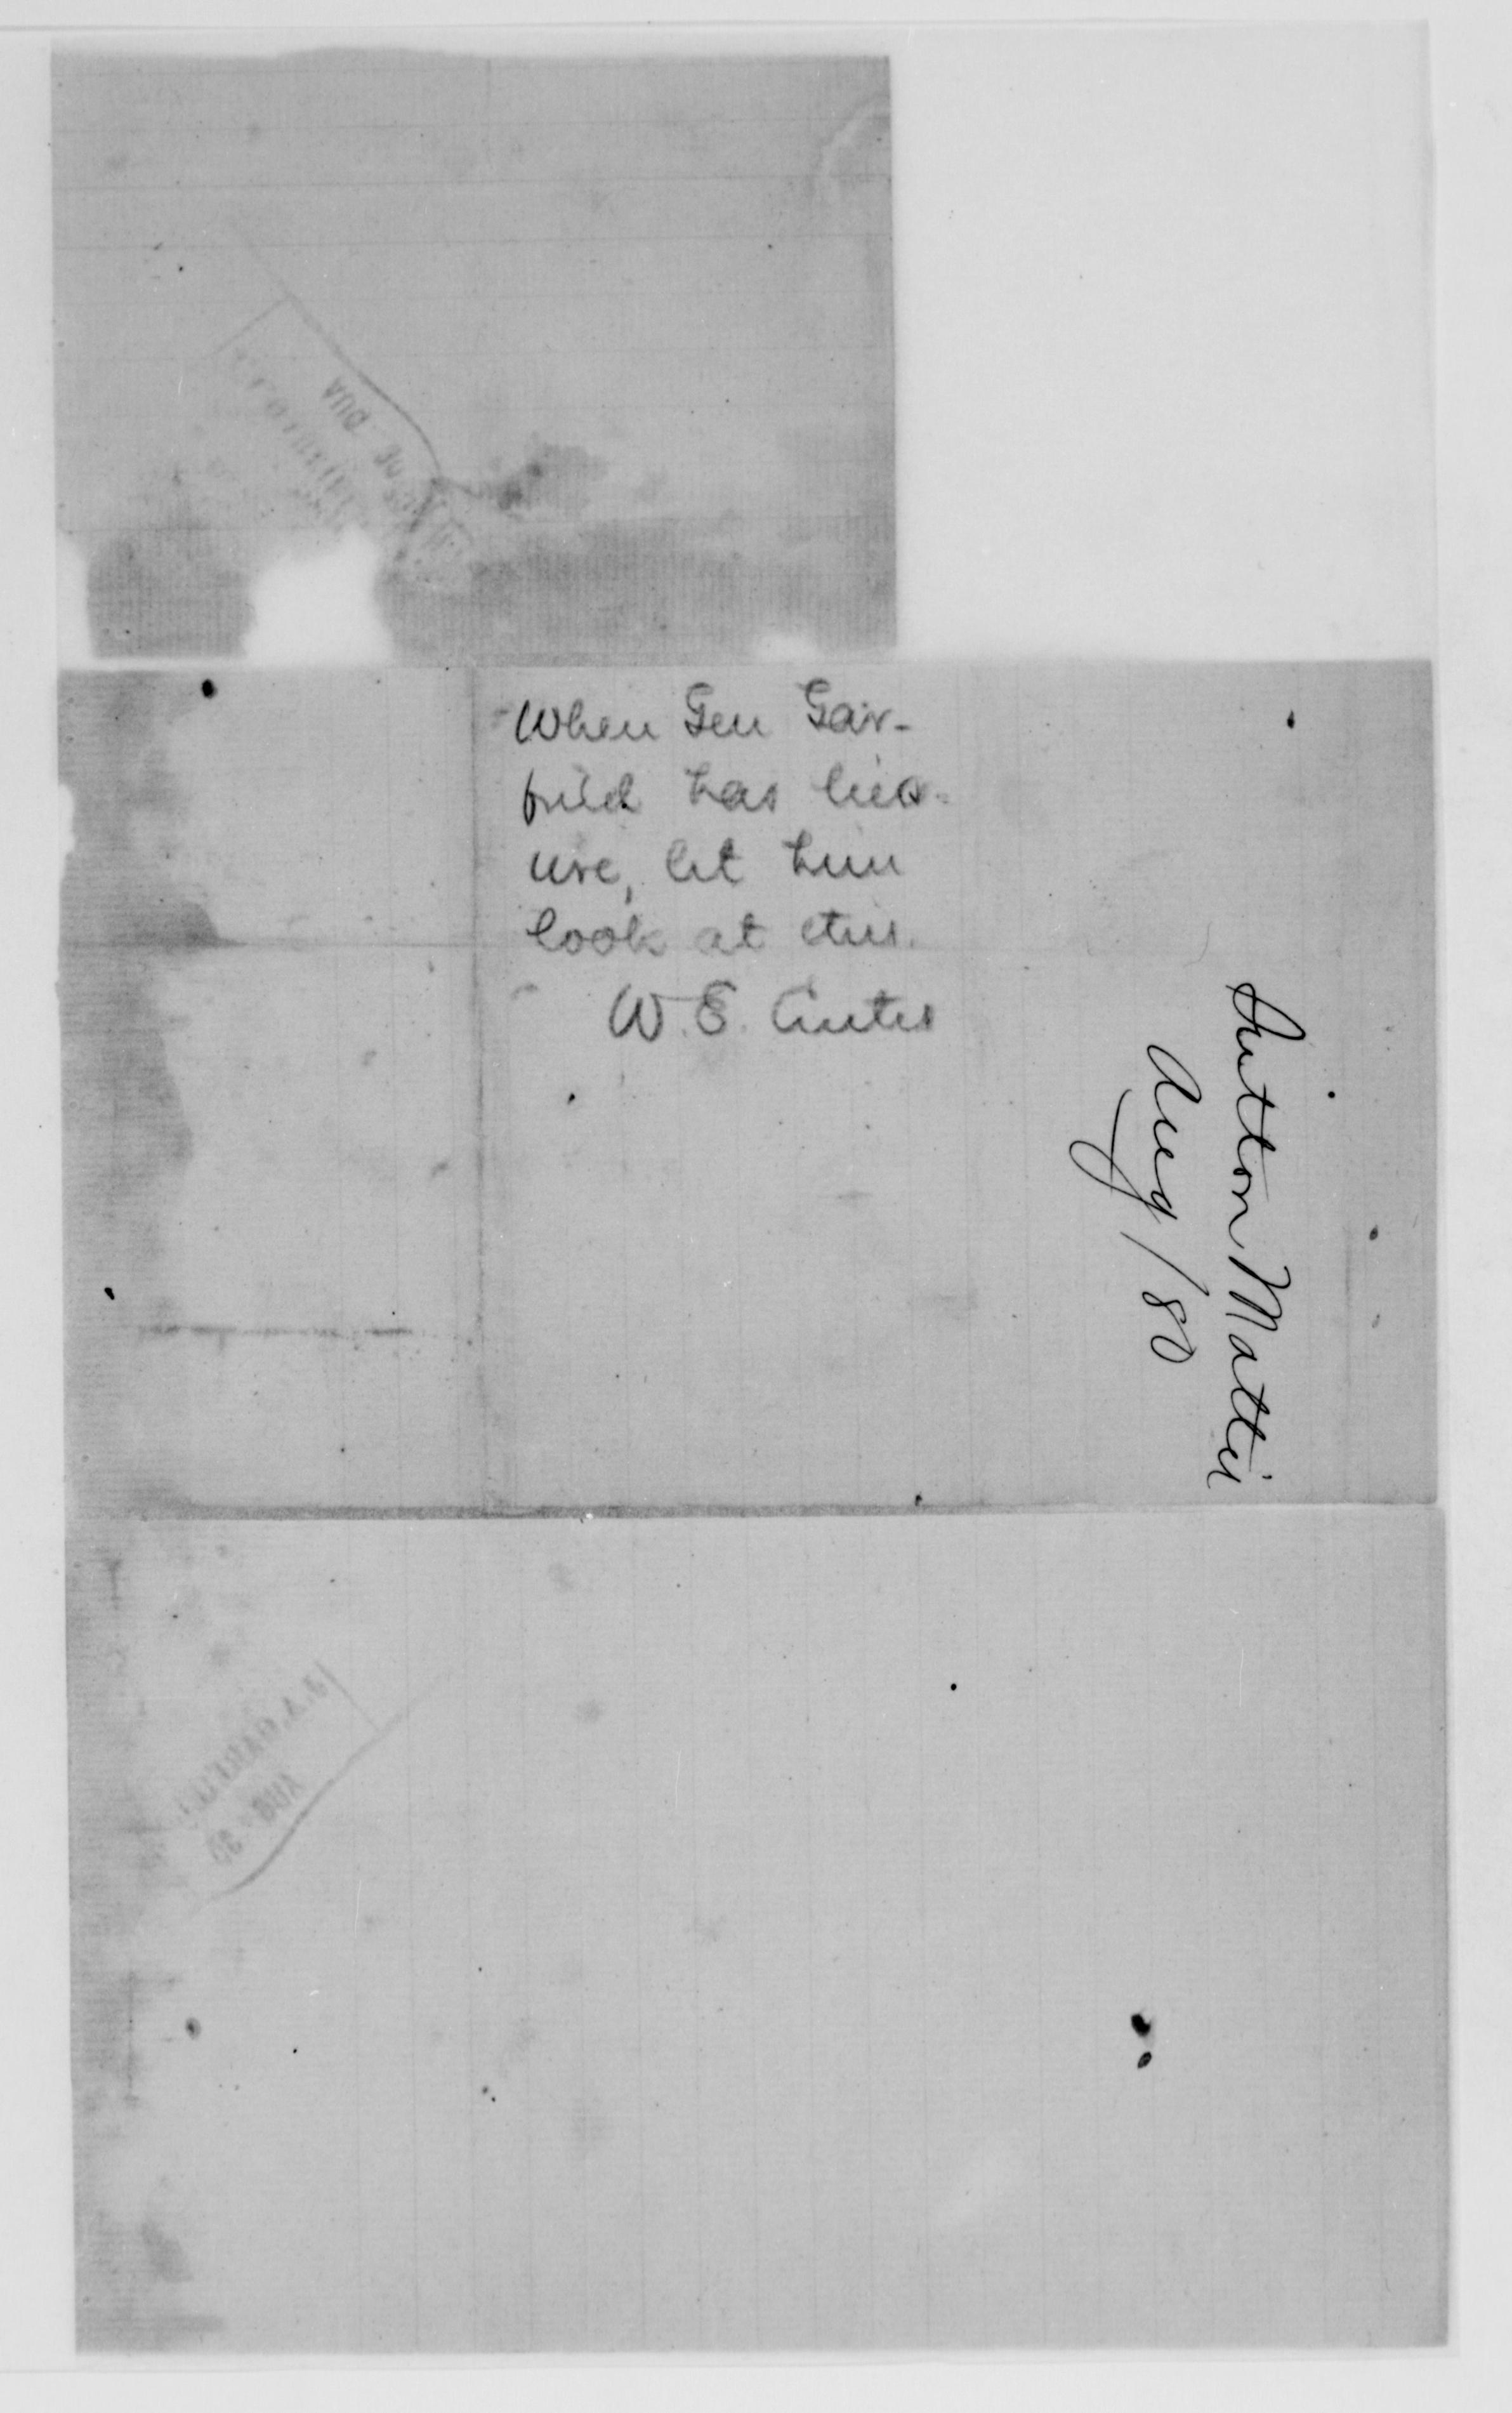 When Gen Gar-
field has leis-
ure, let him
look at this.
W. E. Curtis
Sutton Matter
Aug /80
J.A. GARFIELD
AUG 30
AUG 30